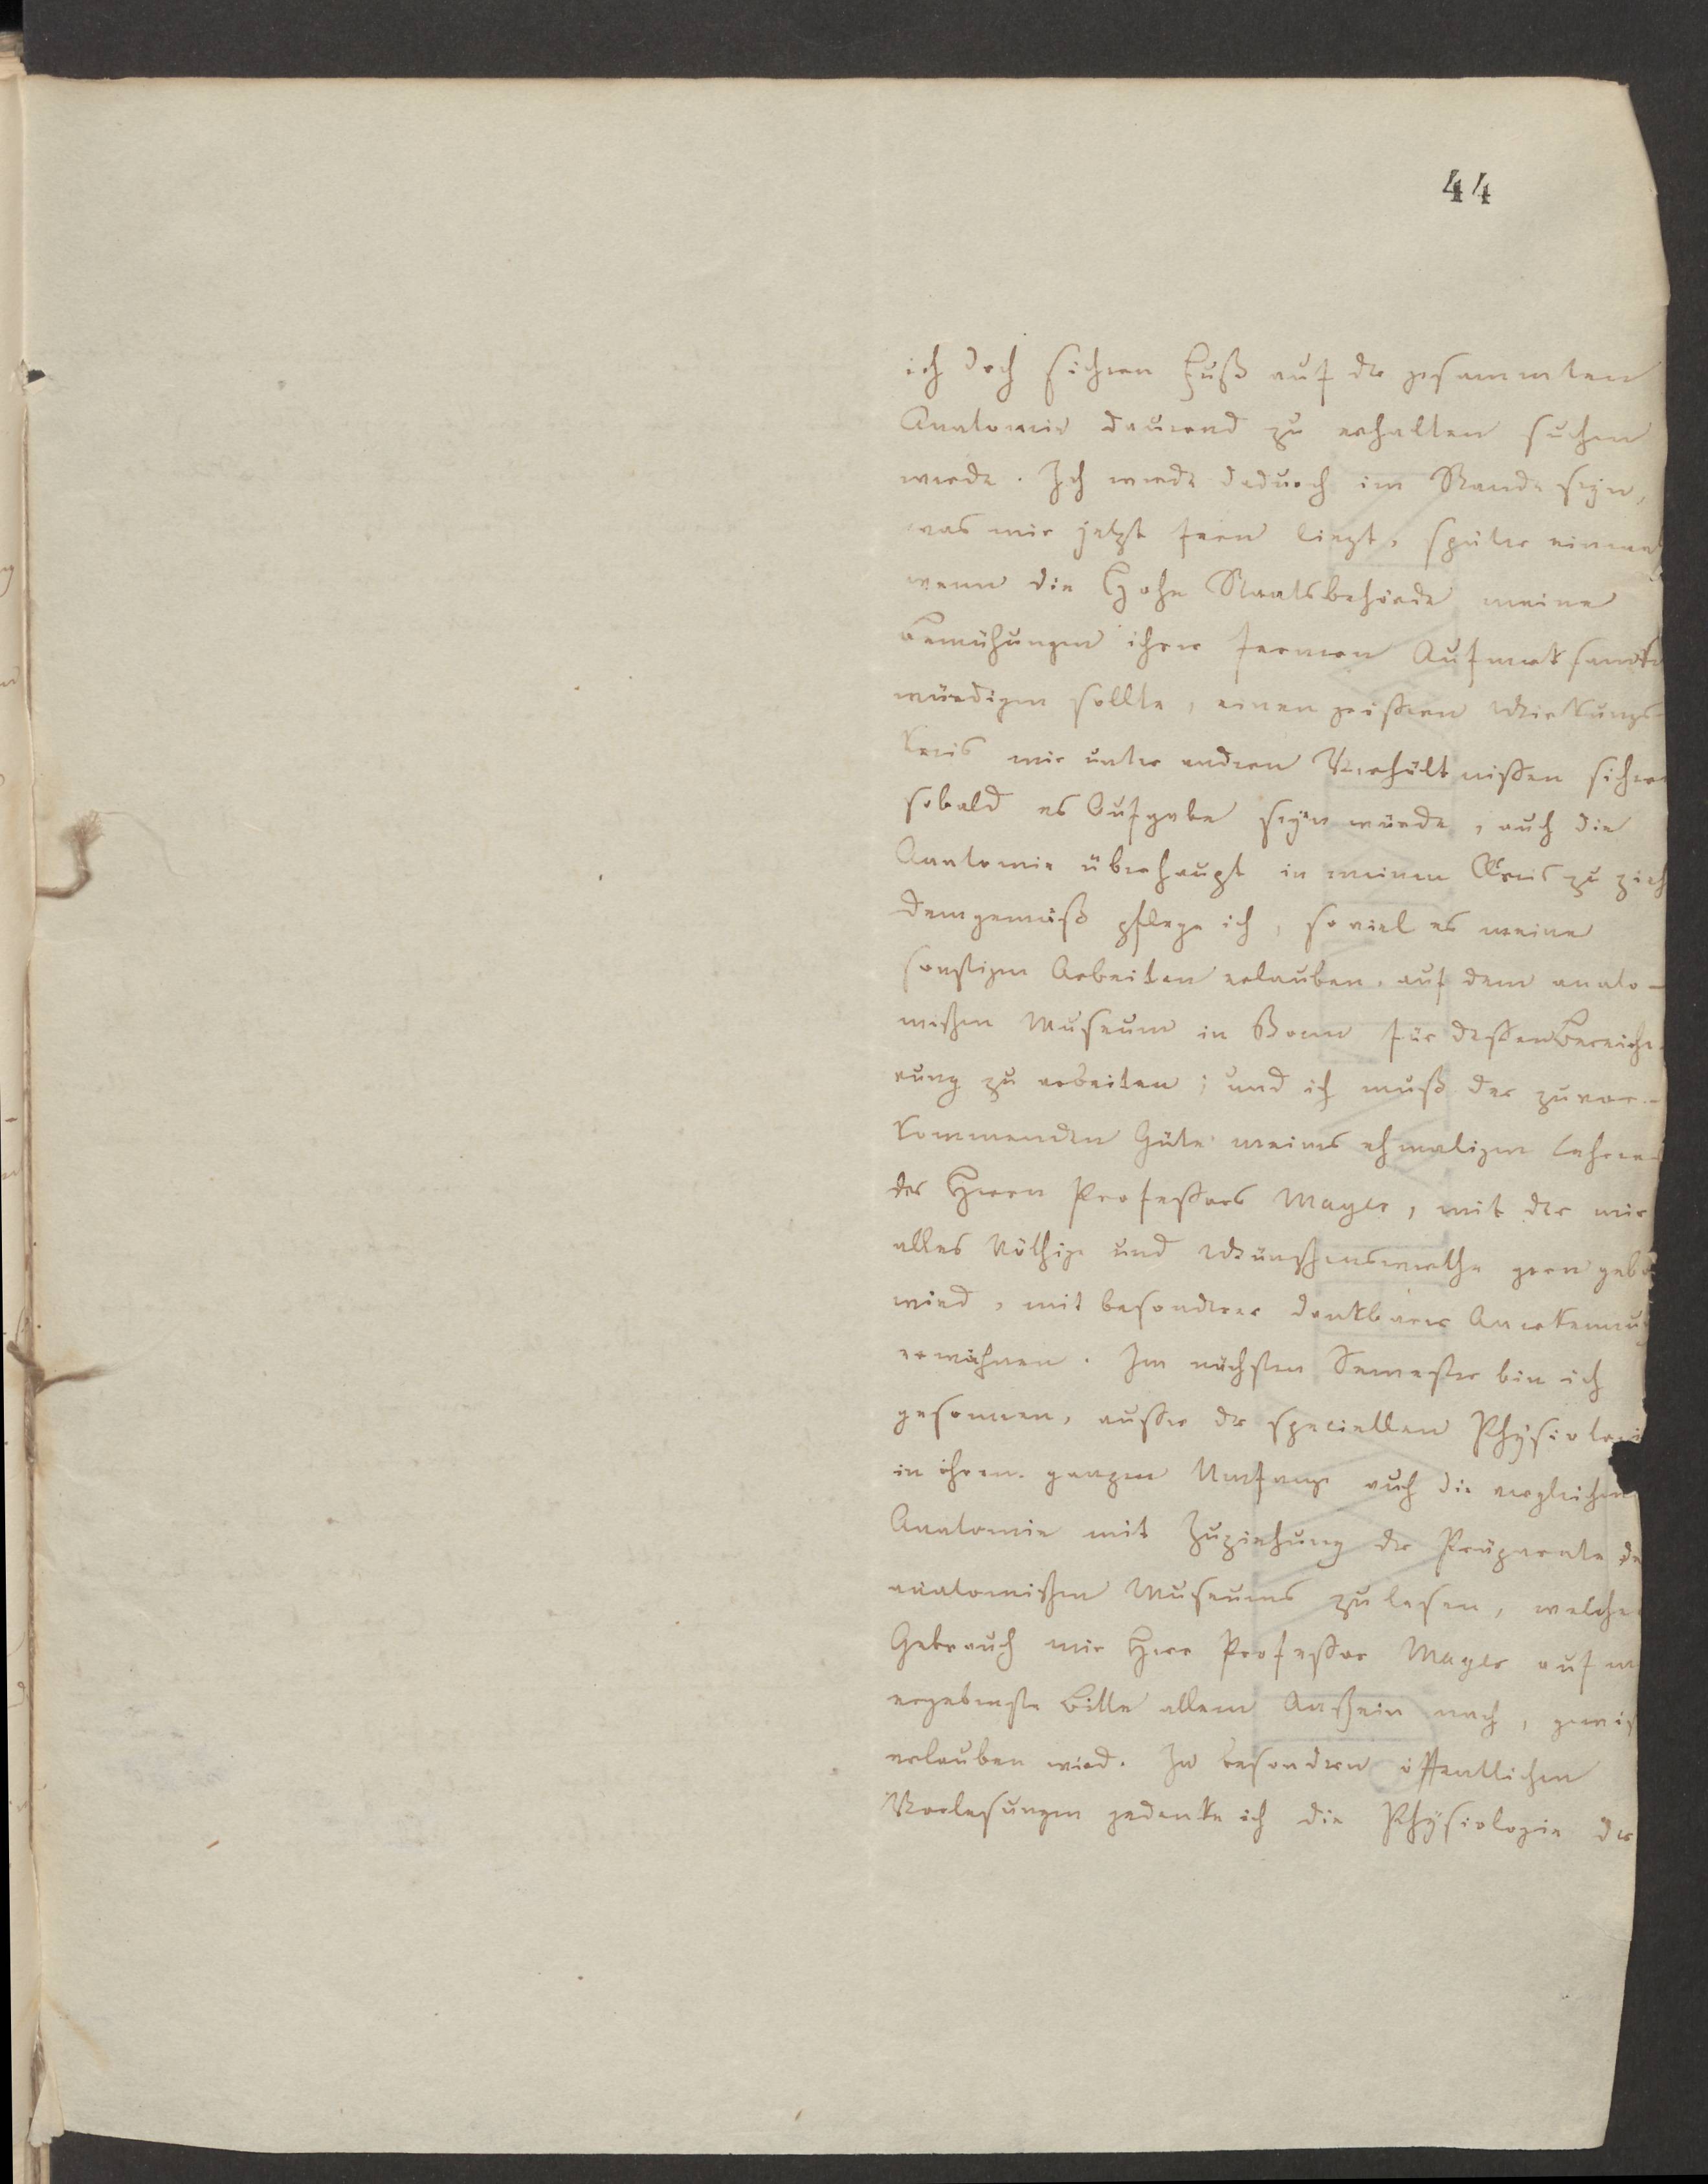 44
ich doch sichren Fuß auf der gesammten
Anatomie dauernd zu erhalten suchen
werde. Ich werde dadurch im Stande seyn,
was mir jetzt fern liegt, später einmal
wenn die Hohe Staatsbehörde meine
Bemühungen ihrer fernern Aufmerksamke
würdigen sollte, einen größren Wirkungs-
kreis mir unter andren Verhältnißen sichern
sobald es Aufgabe seyn würde, auch die
Anatomie überhaupt in meinen Kreis zu zieh
Demgemäß pflege ich, soviel es meine
sonstigen Arbeiten erlauben, auf dem anato-
mischen Museum in Bonn für dessen Bereiche-
rung zu arbeiten; und ich muß der zuvor-
kommenden Güte meines ehmaligen Lehrers
des Herrn Professors Mayer, mit der mir
alles Nöthige und Wünschenswerthe gern gebo
wird, mit besonderer dankbarer Anerkennung
erwähnen. Im nächsten Semester bin ich
gesonnen, außer der speciellen Physiologi
in ihrem ganzen Umfange auch die vergleichen
Anatomie mit Zuziehung der Präparate de
anatomischen Museums zu lesen, welche
Gebrauch mir Herr Professor Mayer auf m
ergebenste Bitte allem Anschein nach, gewiß
erlauben wird. In besondern öffentlichen
Vorlesungen gedenke ich die Physiologie der